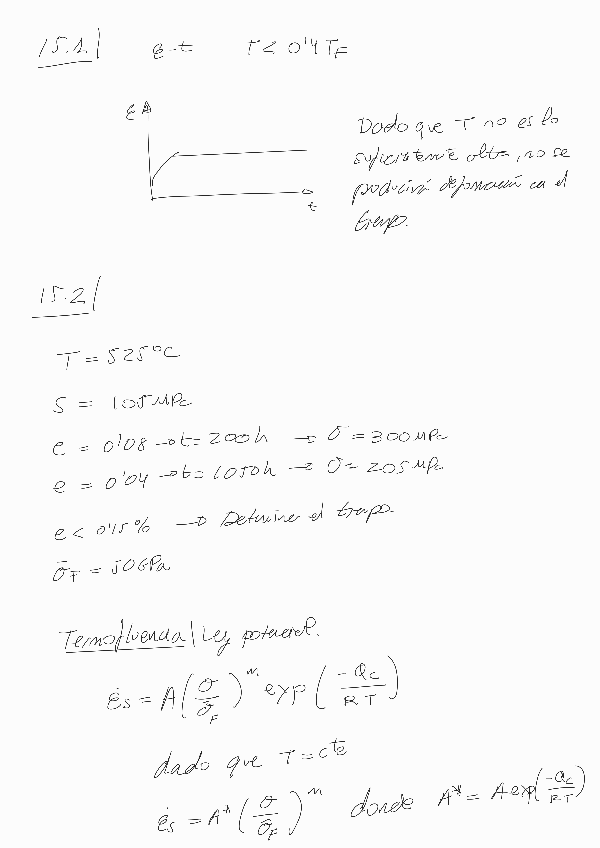 15.1|   ε-t   T < 0'4 T_F
ε
t
Dado que T no es lo
suficientemente alta, no se
producirá deformación en el
tiempo.
15.2|
T = 525°C
S = 105 MPa
e = 0'08 → t = 200h → σ = 300 MPa
e = 0'04 → t = 1050h → σ = 205 MPa
e < 0'15 % → Determine el tiempo
σ_F = 50 GPa
Termofluencia| Ley potencial.
ε̇s = A (σ/σ_F)^m exp (-Qc/RT)
dado que T = cte
ε̇s = A* (σ/σ_F)^m donde A* = A exp(-Qc/RT)